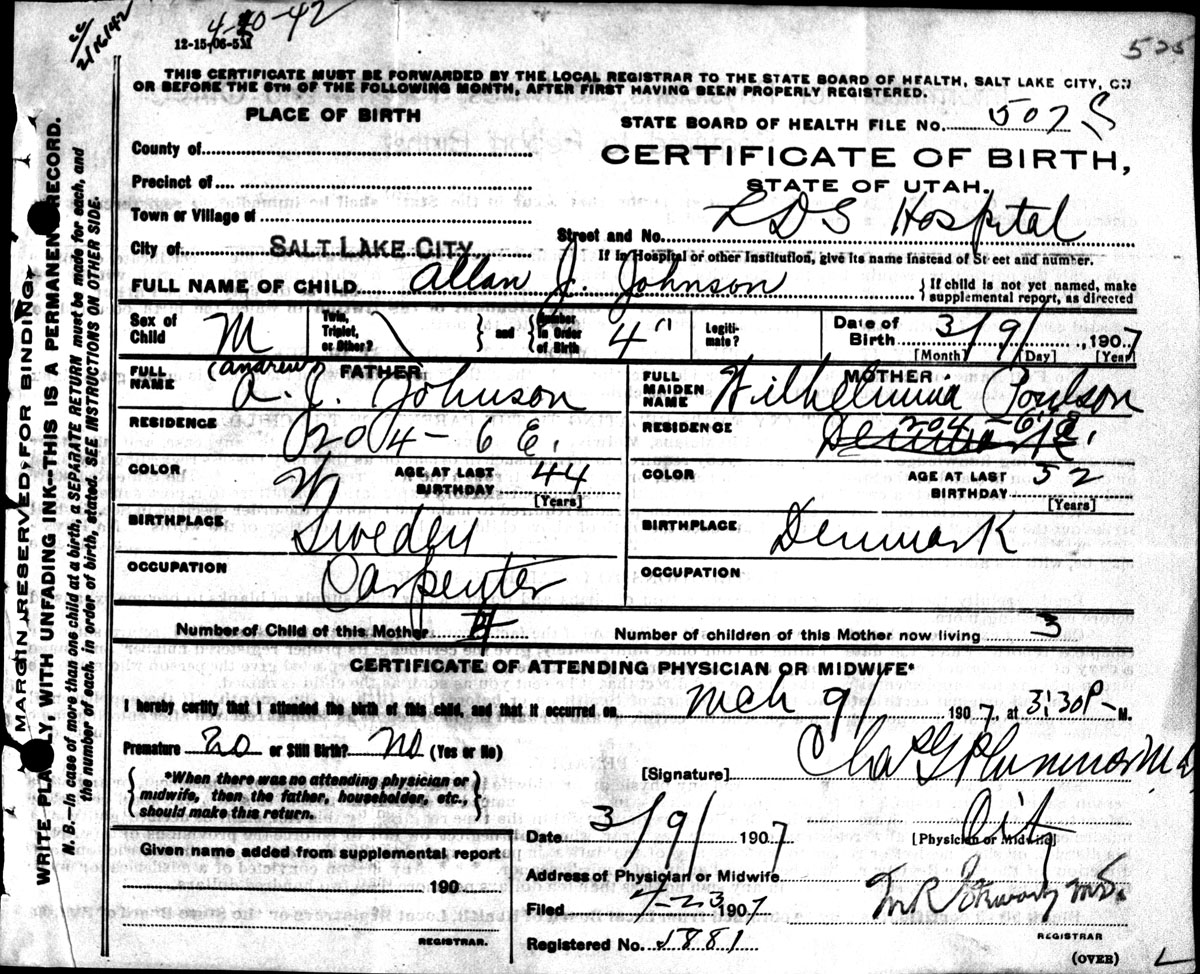 4-20-42
cc 2/16/42
12-15-06-5M
525
THIS CERTIFICATE MUST BE FORWARDED BY THE LOCAL REGISTRAR TO THE STATE BOARD OF HEALTH, SALT LAKE CITY, ON
OR BEFORE THE 5TH OF THE FOLLOWING MONTH, AFTER FIRST HAVING BEEN PROPERLY REGISTERED.
PLACE OF BIRTH
STATE BOARD OF HEALTH FILE No. 507 S
County of
CERTIFICATE OF BIRTH,
Precinct of
STATE OF UTAH.
Town or Village of
Street and No. LDS Hospital
City of SALT LAKE CITY
If in Hospital or other Institution, give its name instead of Street and number.
FULL NAME OF CHILD Allan J. Johnson
{ If child is not yet named, make supplemental report, as directed
Sex of Child M
Twin, Triplet, or Other? } and { Number in Order of Birth 4"
Legitimate?
Date of Birth 3/9/ 1907
[Month] [Day] [Year]
FATHER
FULL NAME (Andrew) A. J. Johnson
RESIDENCE 204-6 E.
COLOR W
AGE AT LAST BIRTHDAY 44
[Years]
BIRTHPLACE Sweden
OCCUPATION Carpenter
MOTHER
FULL MAIDEN NAME Wilhelmina Poulson
RESIDENCE 204-6 E.
COLOR
AGE AT LAST BIRTHDAY 32
[Years]
BIRTHPLACE Denmark
OCCUPATION
Number of Child of this Mother 4
Number of children of this Mother now living 3
CERTIFICATE OF ATTENDING PHYSICIAN OR MIDWIFE*
I hereby certify that I attended the birth of this child, and that it occurred on Mch 9/ 1907, at 3:30 P- M.
Premature No or Still Birth? No (Yes or No)
{ *When there was no attending physician or midwife, then the father, householder, etc., should make this return. }
[Signature] Chas G Plummer M.D.
[Physician or Midwife]
Date 3/9/ 1907
Given name added from supplemental report
190
REGISTRAR.
Address of Physician or Midwife City
Filed 4-23 1907
REGISTRAR
Registered No. 5881
(OVER)
MARGIN RESERVED FOR BINDING.
WRITE PLAINLY, WITH UNFADING INK--THIS IS A PERMANENT RECORD.
N. B.—In case of more than one child at a birth, a SEPARATE RETURN must be made for each, and
the number of each, in order of birth, stated. SEE INSTRUCTIONS ON OTHER SIDE.